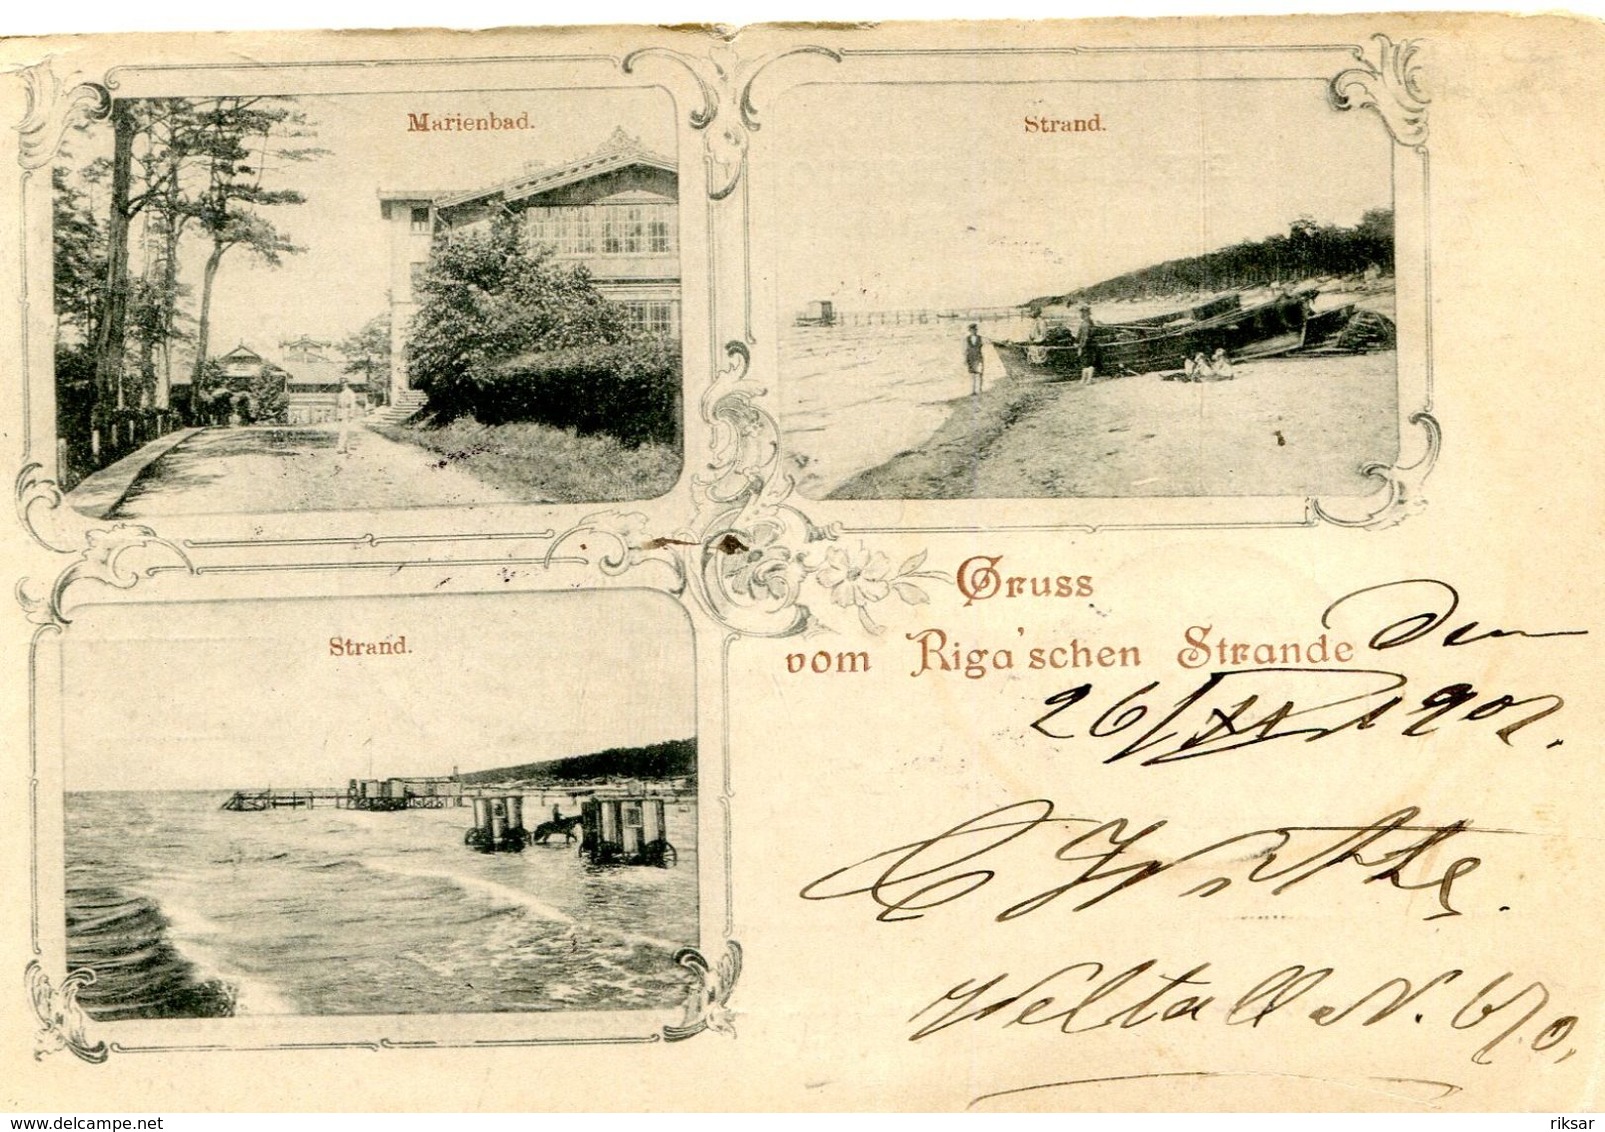 Marienbad.
Strand.
Strand.
Gruss
vom Riga'schen Strande
Den
26/XI 1902.
Weltall N. 670,
www.delcampe.net
riksar